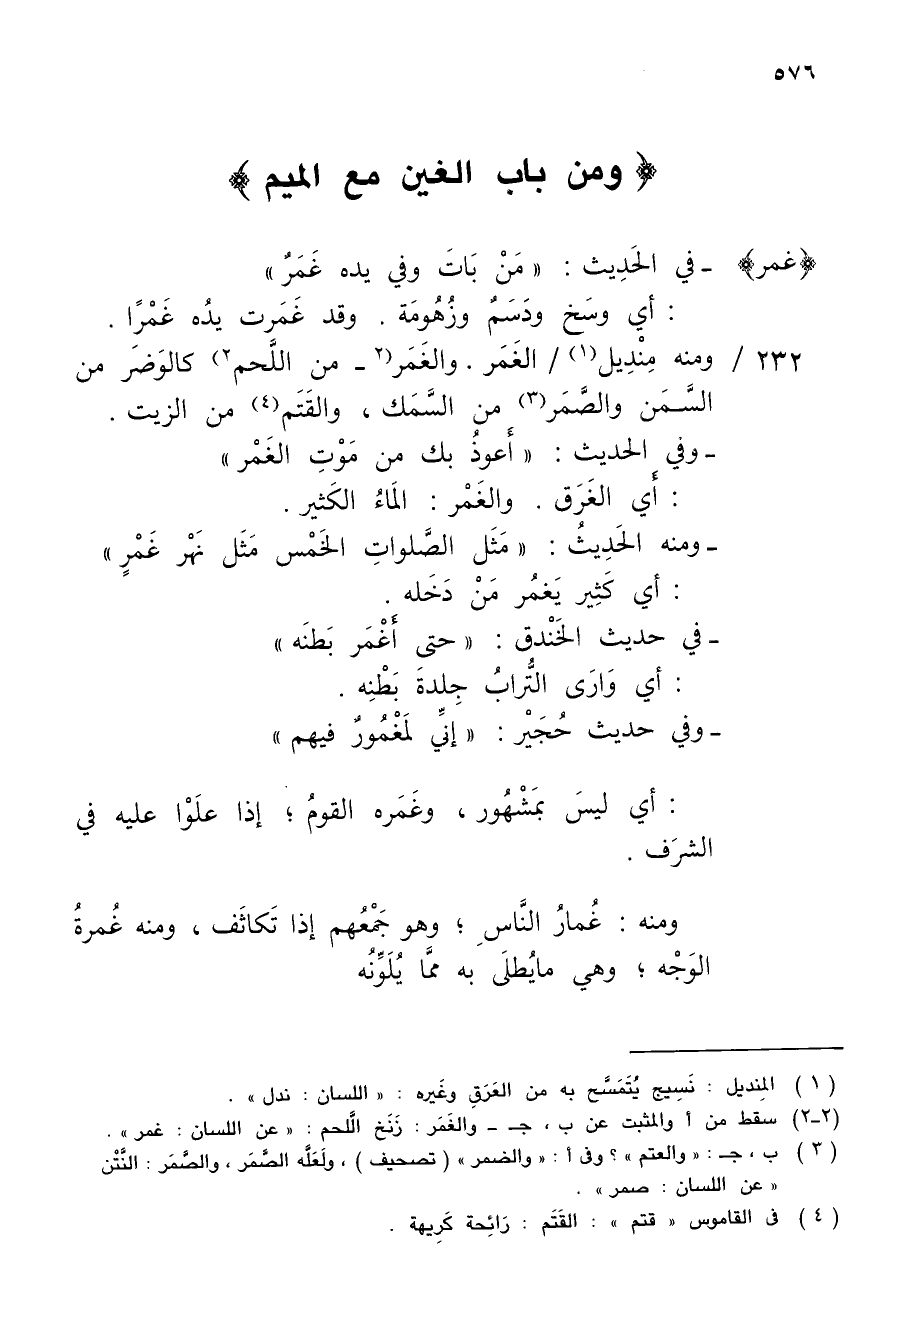 ٥٧٦
﴿ ومن باب الغين مع الميم ﴾
﴿غمر﴾ ـ في الحَدِيث : « مَنْ بَاتَ وفي يده غَمَرٌ »
: أي وسَخ ودَسَمٌ وزُهُومَة . وقد غَمَرت يدُه غَمْرًا .
٢٣٢ / ومنه مِنْدِيل(١) / الغَمَر . والغَمَر(٢ ـ من اللَّحم٢) كالوَضَر من
السَّمَن والصَّمَر(٣) من السَّمَك ، والقَتَم(٤) من الزيت .
ـ وفي الحديث : « أَعوذُ بك من مَوْتِ الغَمْر »
: أَي الغَرَق . والغَمْر : المَاءُ الكَثير .
ـ ومنه الحَدِيثُ : « مَثَل الصَّلواتِ الخَمْس مَثَل نَهْر غَمْرٍ »
: أي كَثِير يَغمُر مَنْ دَخَله .
ـ في حديث الخَنْدق : « حتى أَغْمَر بَطنَه »
: أي وَارَى التُّرابُ جِلدةَ بَطْنِه .
ـ وفي حديث حُجَيْر : « إنِّي لمَغْمُورٌ فيهم »
: أي ليسَ بمَشْهُور ، وغَمَره القومُ ؛ إذا علَوْا عليه في
الشرَف .
ومنه : غُمارُ النَّاسِ ؛ وهو جَمْعُهم إذا تَكاثَف ، ومنه غُمرةُ
الوَجْه ؛ وهي مايُطلَى به ممَّا يُلَوِّنُه
(١) المِنديل : نَسِيج يُتَمَسَّح به من العَرَقِ وغَيره : « اللسان : ندل » .
(٢ـ٢) سقط من أ والمثبت عن ب ، جـ ـ والغَمَر : زَنَخ اللَّحم : « عن اللسان : غمر » .
(٣) ب ، جـ : « والعتم »؟ وفى أ : « والضمر » ( تصحيف ) ، ولَعَلَّه الصَّمَر ، والصَّمَر : النَّتْن
« عن اللسان : صمر » .
(٤) فى القاموس « قتم » : القَتَم : رَائِحة كَرِيهة .